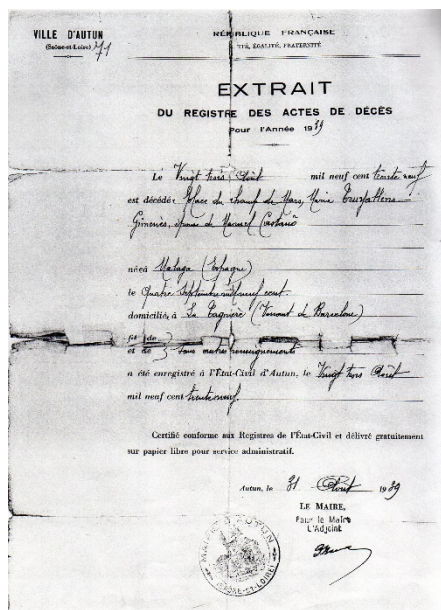 VILLE D'AUTUN
(Saône-et-Loire) 71
RÉPUBLIQUE FRANÇAISE
ÉGALITÉ, FRATERNITÉ
EXTRAIT
DU REGISTRE DES ACTES DE DÉCÈS
Pour l'Année 1939
Le Vingt trois Août mil neuf cent trente neuf
est décédée Place du Champ de Mars, Maria
Gimenès, épouse de Manuel Castaño
née à Malaga (Espagne)
le Quatre Septembre mil neuf cent
domiciliée à La Tagnière (Venant de Barcelone)
fil de
et de sans autres renseignements
a été enregistré à l'État-Civil d'Autun, le Vingt trois Août
mil neuf cent trente neuf.
Certifié conforme aux Registres de l'État-Civil et délivré gratuitement
sur papier libre pour service administratif.
Autun, le 31 Août 1939
LE MAIRE,
Pour le Maire
L'Adjoint
MAIRIE D'AUTUN
(SAÔNE-ET-LOIRE)